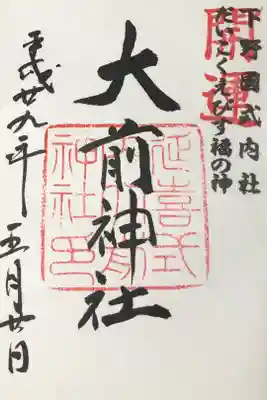 開運
下野國式内社
だいこくえびす福の神
大前神社
延喜式
神社印
平成廿九年 五月廿日